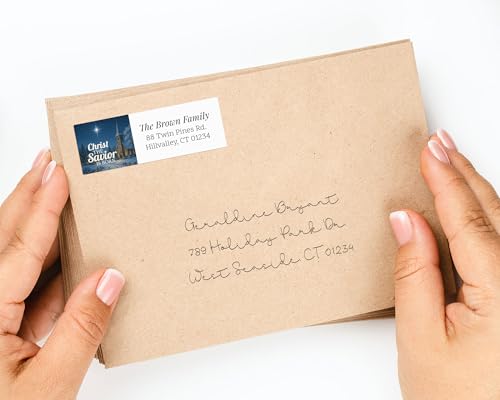 Christ
THE
Savior
IS BORN
The Brown Family
88 Twin Pines Rd.
Hillvalley, CT 01234
Geraldine Bryant
789 Holiday Park Dr
West Seaside CT 01234